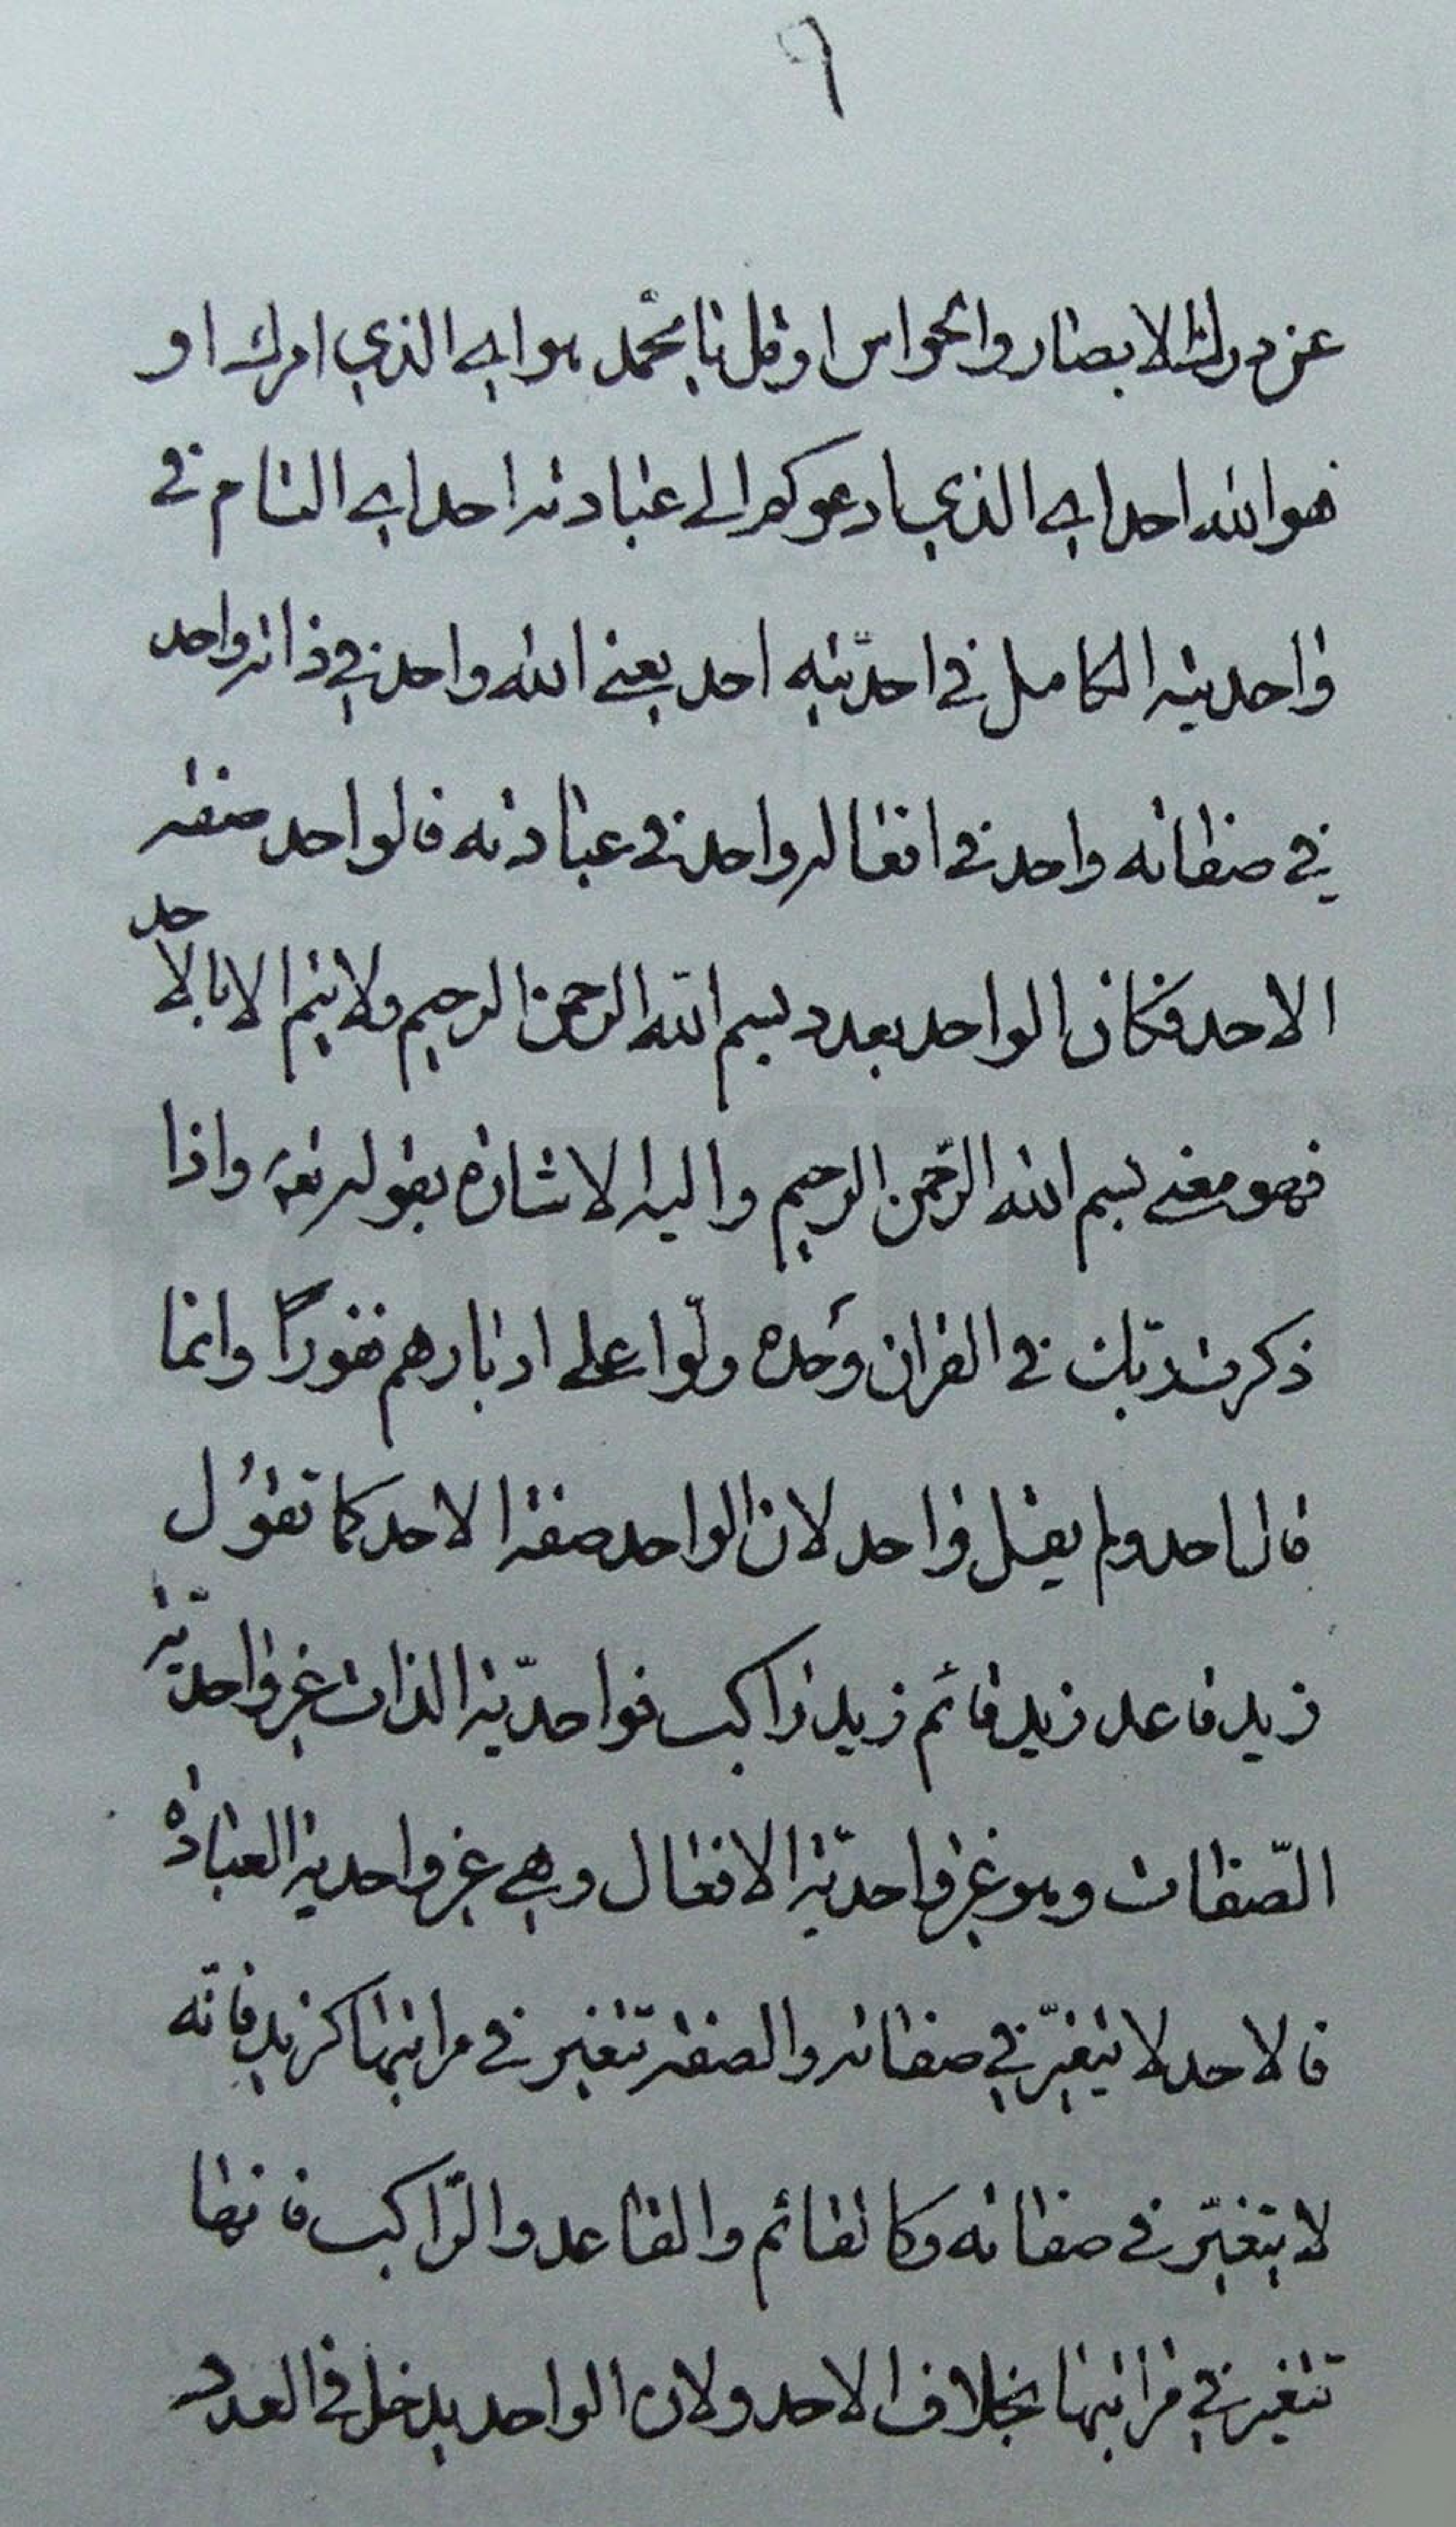 ٦
عن درك الابصار والحواس او قل يا محمد هو اي الذي امرك او
هو الله احد اي الذي ادعوكم الى عبادته احد اي التام في
واحديته الكامل في احديته احد يعني الله واحد في ذاته واحد
في صفاته واحد في افعاله واحد في عبادته فالواحد صفة
الاحد فكان الواحد بعدد بسم الله الرحمن الرحيم ولا يتم الا بالاحد
فهو معنى بسم الله الرحمن الرحيم واليه الاشارة بقوله تعه واذا
ذكرت ربّك في القران وَحْده ولّوا على ادبارهم نفوراً وانما
قال احد ولم يقل واحد لان الواحد صفة الاحد كما تقول
زيد قاعد زيد قائم زيد راكب فواحديّة الذات غير واحديّة
الصّفات وهو غير واحديّة الافعال وهي غير واحدية العبادة
فالاحد لا يتغيّر في صفاته والصفة تتغير في مراتبها كزيد فانّه
لا يتغيّر في صفاته وكالقائم والقاعد والرّاكب فانها
تتغير في مراتبها بخلاف الاحد ولان الواحد يدخل في العدد